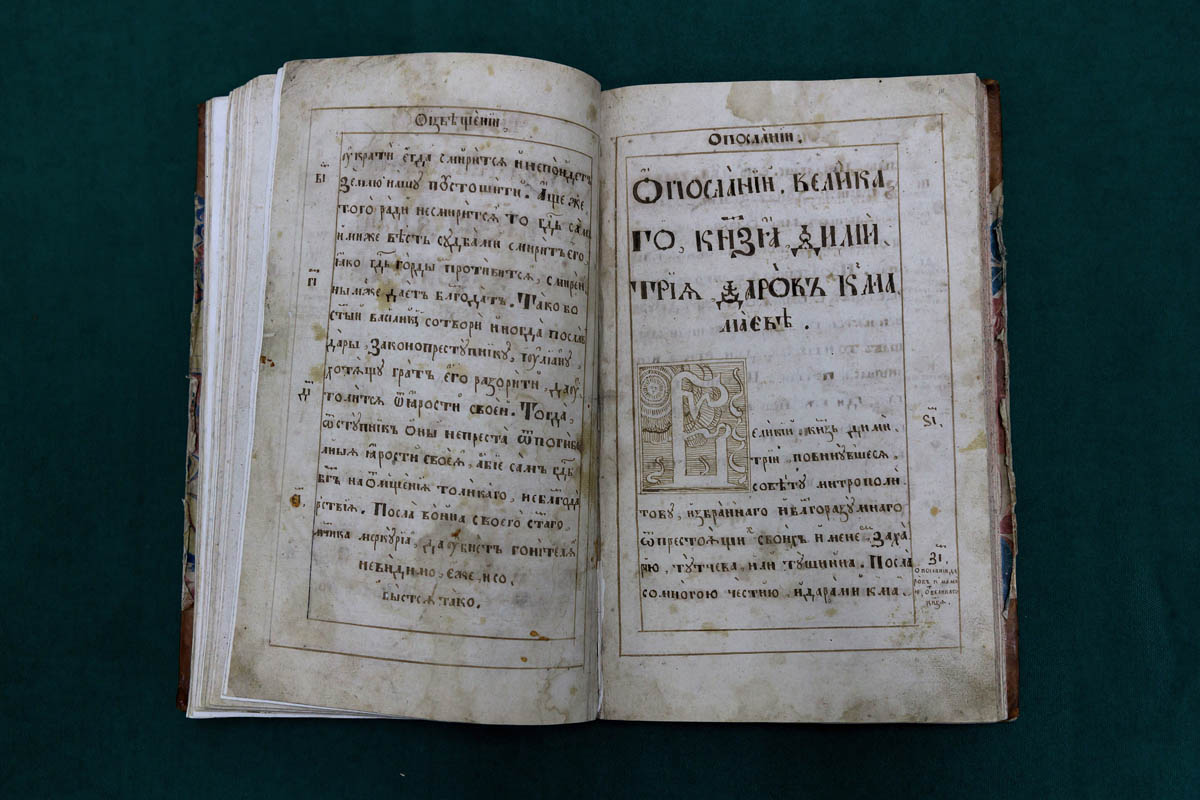 Ѡцѣщенїи
ѹкрати егда смиритсѧ и непойдетъ
землю нашу пустошити. Аще же
того ради несмиритсѧ то бг҃ъ самъ
имиже вѣсть судбами смиритъ его,
ꙗко бг҃ъ гордымъ противитсѧ, смирен
нымже даетъ благодать. Тако бо
ст҃ый василїй сотвори иногда послав
дары, законопреступнику, їоулїану,
хотѧщу градъ его разорити, да
толитсѧ ѿ ꙗрости своеи. Тогда,
ѿступникъ оный непреста ѿ погибе
лныѧ ꙗрости своеѧ, абїе самъ
бг҃ъ на ѡмщенїѧ толикаго, неблагода
рствїѧ. Посла воина своего ст҃аго,
мꙋченика меркурїѧ, да убиетъ гонителѧ
невидимо, еже, и со,
бытсѧ тако.
вı҃
гı҃
дı҃
Ѡпосланїи.
Ѡ посланїи, велика
го, кн҃зѧ, Дими
трїѧ даровъ к мa
маевѣ.
Великїй кнз҃ь дими
трїй, повинувшесѧ,
совѣту митрополи
тову, избраннаго и благоразумнаго
ѿ престоѧщих своихъ именем заха
рїю, тутчева, или тушиина. Посла
со многою честию, и дарами к ма
ѕı҃.
зı҃.